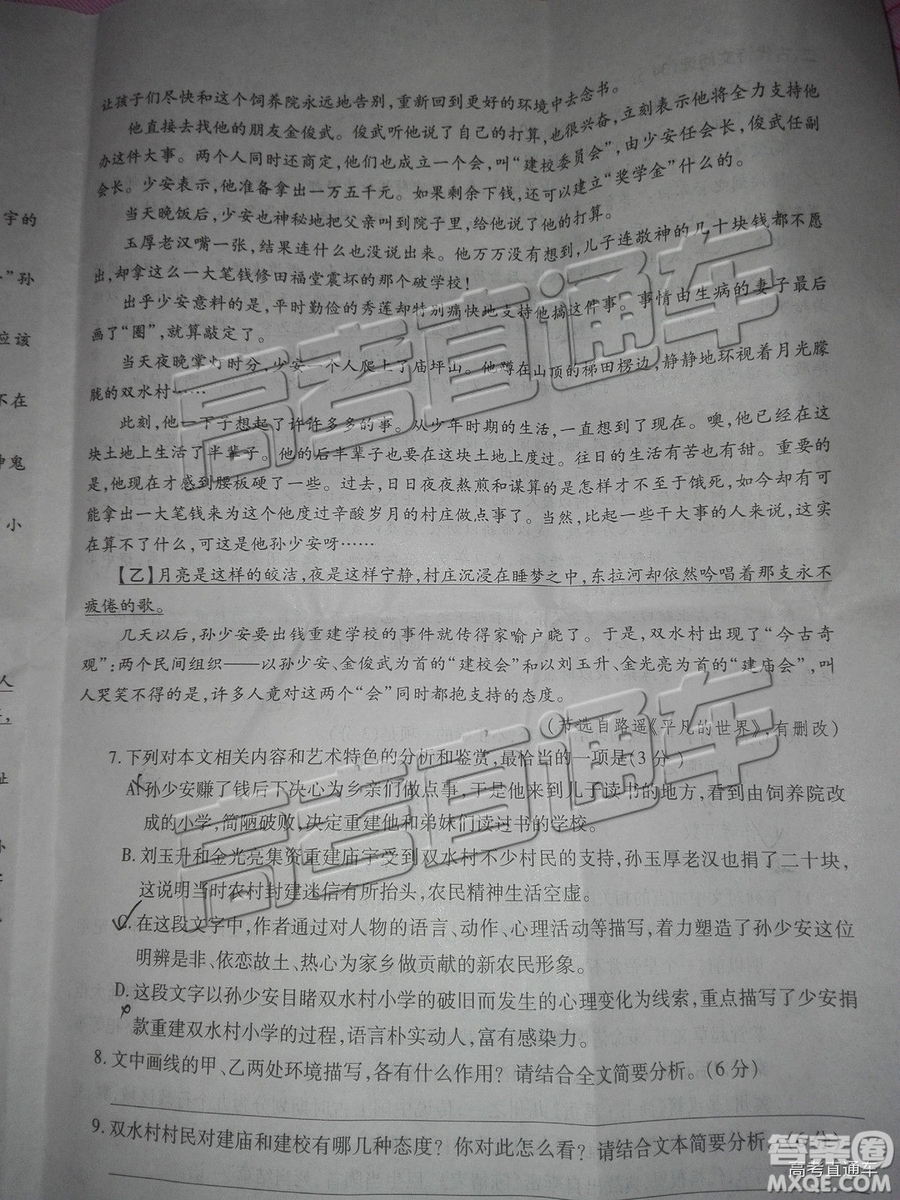 让孩子们尽快和这个饲养院永远地告别，重新回到更好的环境中去念书。
他直接去找他的朋友金俊武。俊武听他说了自己的打算，也很兴奋，立刻表示他将全力支持他
办这件大事。两个人同时还商定，他们也成立一个会，叫“建校委员会”，由少安任会长，俊武任副
会长。少安表示，他准备拿出一万五千元。如果剩余下钱，还可以建立“奖学金”什么的。
当天晚饭后，少安也神秘地把父亲叫到院子里，给他说了他的打算。
玉厚老汉嘴一张，结果连什么也没说出来。他万万没有想到，儿子连敬神的几十块钱都不愿
出，却拿这么一大笔钱修田福堂震坏的那个破学校！
出乎少安意料的是，平时勤俭的秀莲却特别痛快地支持他搞这件事。事情由生病的妻子最后
画了“圈”，就算敲定了。
当天夜晚掌灯时分，少安一个人爬上了庙坪山。他蹲在山顶的梯田楞边，静静地环视着月光朦
胧的双水村……
此刻，他一下子想起了许许多多的事。从少年时期的生活，一直想到了现在。噢，他已经在这
块土地上生活了半辈子。他的后半辈子也要在这块土地上度过。往日的生活是艰难的。重要的
是，他现在才感到腰板硬了一些。过去，日日夜夜熬煎和谋算的是怎样才不至于饿死，如今却有可
能拿出一大笔钱来为这个他度过辛酸岁月的村庄做点事了。当然，比起一些干大事的人来说，这实
在算不了什么，可这是他孙少安呀……
【乙】月亮是这样的皎洁，夜是这样宁静，村庄沉浸在睡梦之中，东拉河却依然吟唱着那支永不
疲倦的歌。
几天以后，孙少安要出钱重建学校的事件就传得家喻户晓了。于是，双水村出现了“今古奇
观”：两个民间组织——以孙少安、金俊武为首的“建校会”和以刘玉升、金光亮为首的“建庙会”，叫
人哭笑不得的是，许多人竟对这两个“会”同时都抱支持的态度。
（节选自路遥《平凡的世界》，有删改）
7. 下列对本文相关内容和艺术特色的分析和鉴赏，最恰当的一项是（3 分）
A. 孙少安赚了钱后下决心为乡亲们做点事，于是他来到儿子读书的地方，看到由饲养院改
成的小学，简陋破败，决定重建他和弟妹们读过书的学校。
B. 刘玉升和金光亮集资重建庙宇受到双水村不少村民的支持，孙玉厚老汉也捐了二十块，
这说明当时农村封建迷信有所抬头，农民精神生活空虚。
C. 在这段文字中，作者通过对人物的语言、动作、心理活动等描写，着力塑造了孙少安这位
明辨是非、依恋故土、热心为家乡做贡献的新农民形象。
D. 这段文字以孙少安目睹双水村小学的破旧而发生的心理变化为线索，重点描写了少安捐
款重建双水村小学的过程，语言朴实动人，富有感染力。
8. 文中画线的甲、乙两处环境描写，各有什么作用？请结合全文简要分析。（6 分）
9. 双水村村民对建庙和建校有哪几种态度？你对此怎么看？请结合文本简要分析。（6 分）
宇的
”孙
应该
不在
神鬼
小
人
高考直通车
高考直通车
答案圈
高考直通车
MXQE.COM